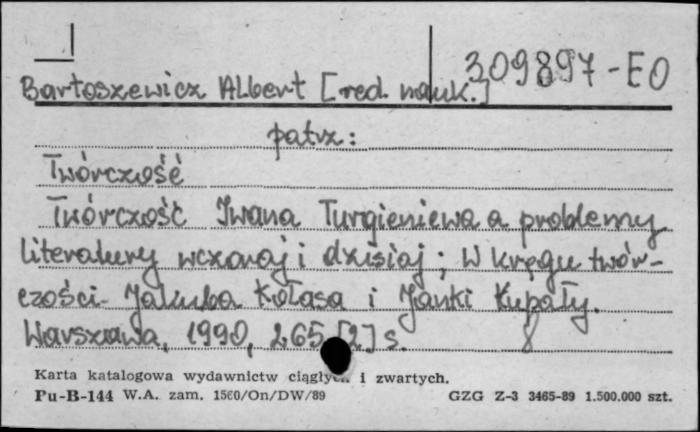 309897-EO
Bartoszewicz Albert [red. nauk.]
patrz:
Twórczość
Twórczość Iwana Turgieniewa a problemy
literatury wczoraj i dzisiaj; W kręgu twór-
czości Jakuba Kołasa i Janki Kupały.
Warszawa, 1990, 265 [2] s.
Karta katalogowa wydawnictw ciągłych i zwartych.
Pu-B-144 W.A. zam. 1560/On/DW/89 GZG Z-3 3465-89 1.500.000 szt.